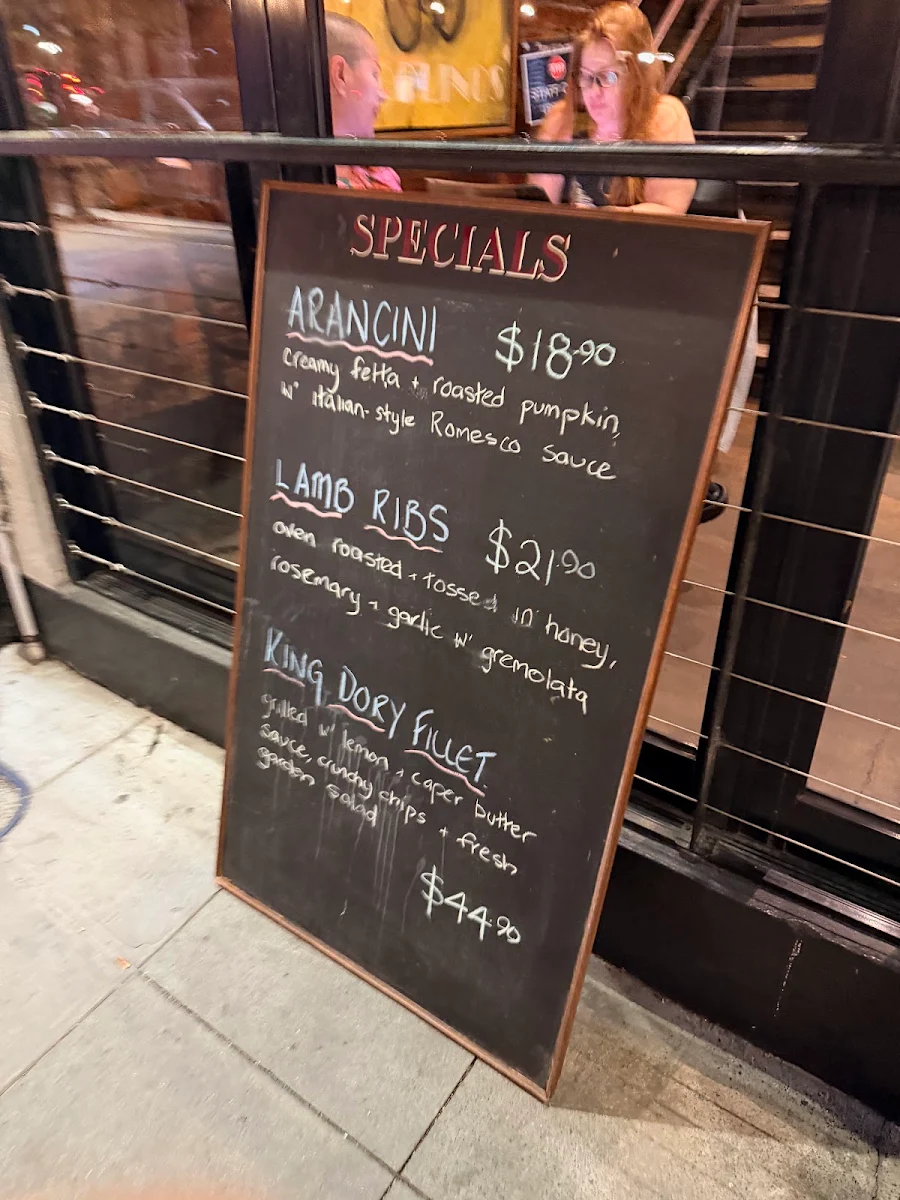 SPECIALS
ARANCINI $18.90
creamy fetta + roasted pumpkin,
w' italian-style Romesco sauce
LAMB RIBS $21.90
oven roasted + tossed in honey,
rosemary + garlic w' gremolata
KING DORY FILLET
grilled w' lemon + caper butter
sauce, crunchy chips + fresh
garden salad
$44.90